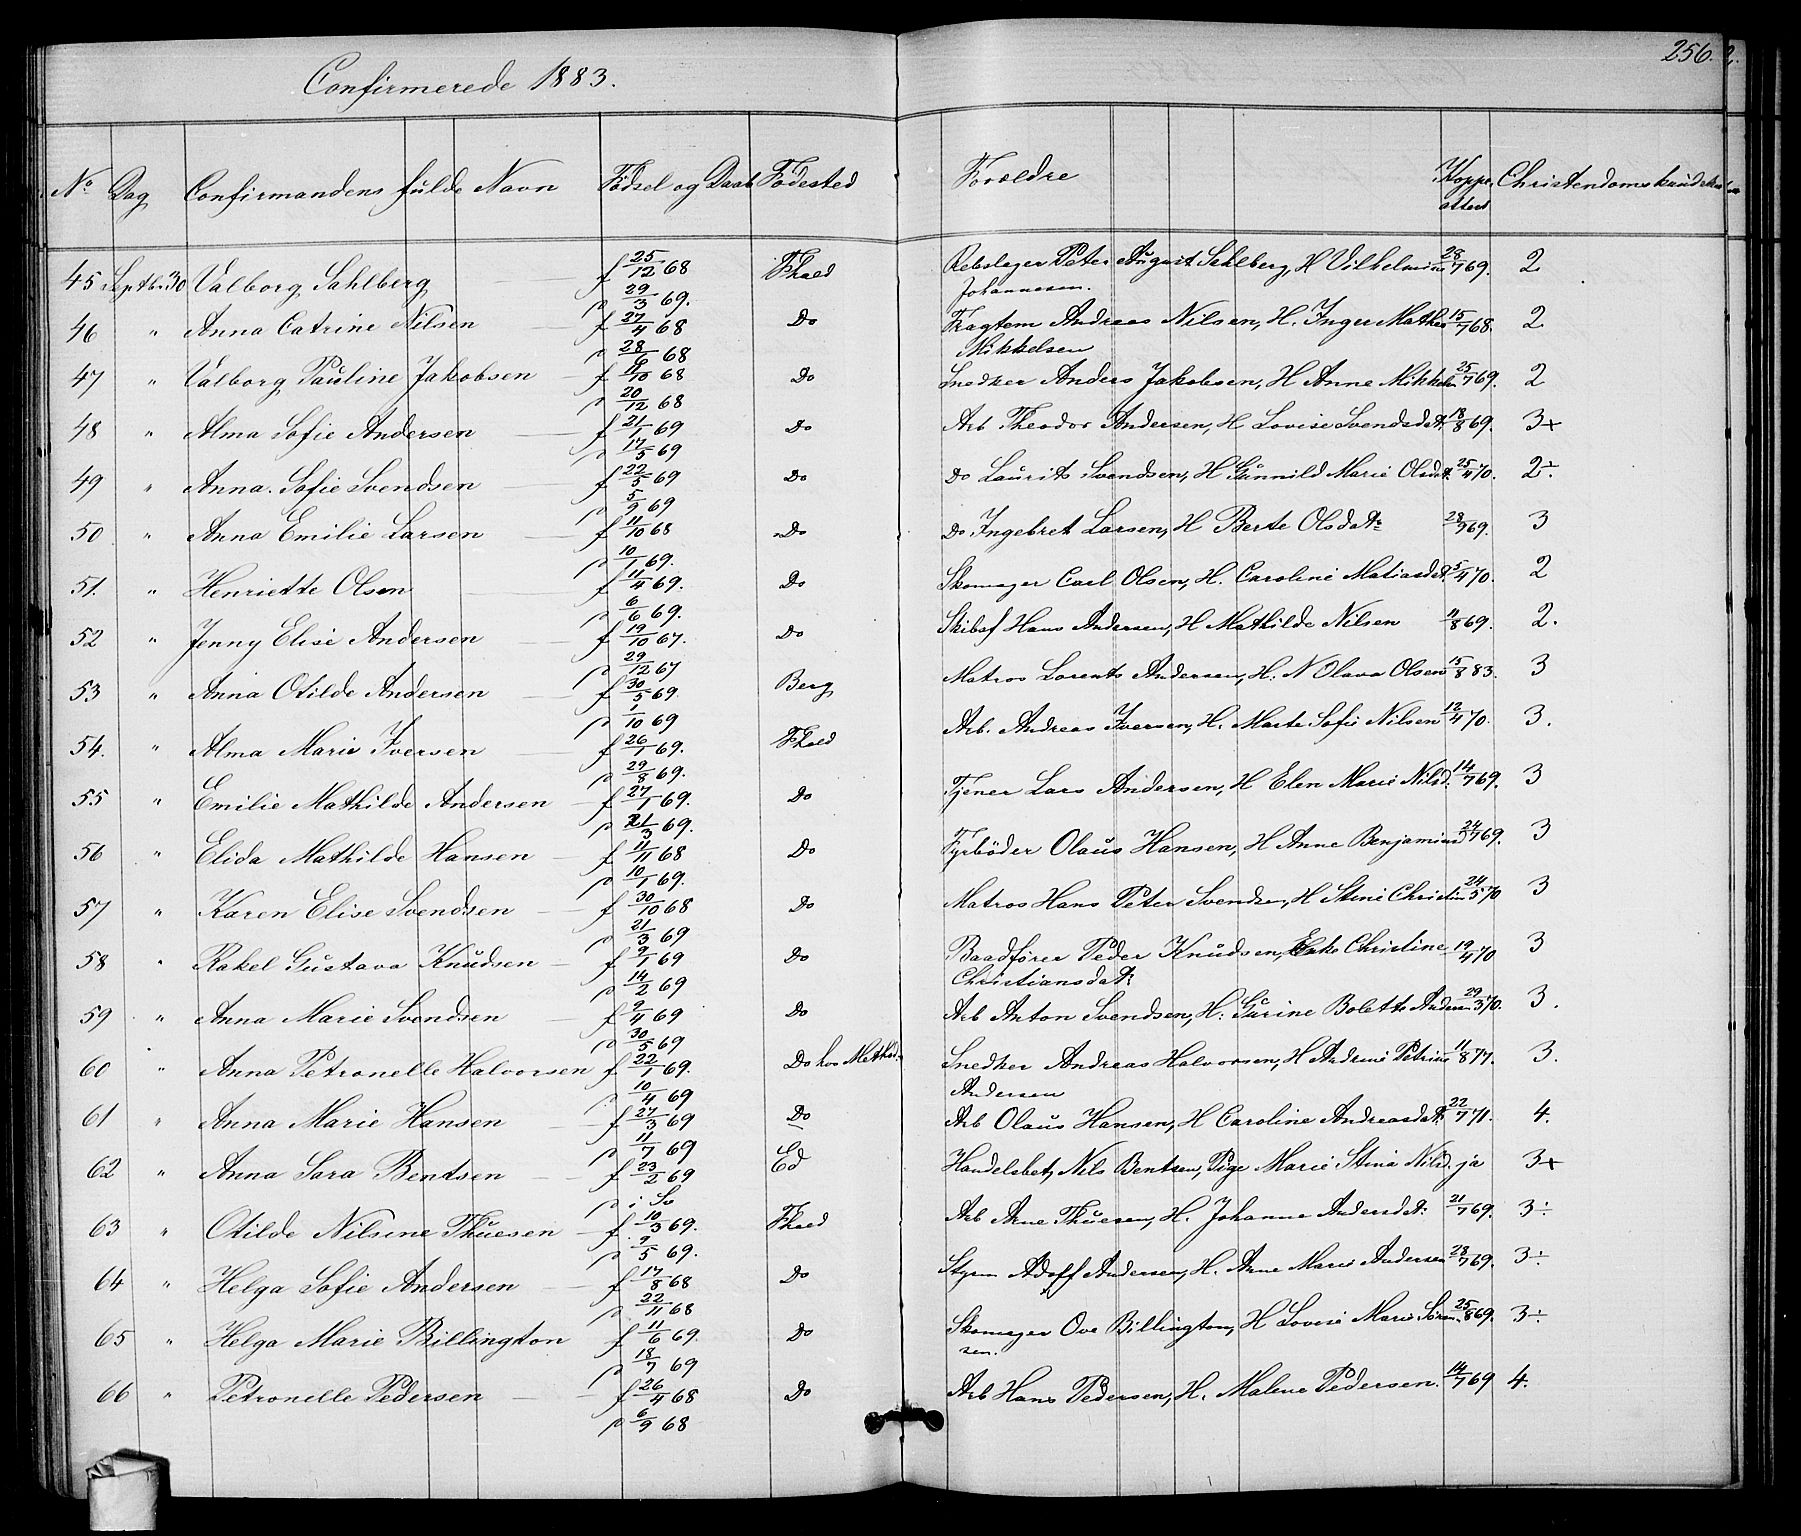 256.
Confirmerede 1883.
No Dag Confirmandens fulde Navn Fødsel og Daab Fødested Forældre Koppe attest Christendomskundskab
45 Septbr 30 Valborg Sahlberg f 25/12 68 Fhald Rebslager Peter August Sahlberg, H Vilhelmine 28/7 69. 2
p 29/3 69. Johannesen.
46 " Anna Catrine Nilsen f 27/4 68 Do Fragtem Andreas Nilsen, H. Inger Mathea 15/7 68. 2
p 28/6 68 Mikkelsen
47 " Valborg Pauline Jakobsen f 11/10 68 Do Snedker Anders Jakobsen, H Anne Mikkels 25/7 69. 2
p 20/12 68
48 " Alma Sofie Andersen f 21/1 69 Do Arb Theodor Andersen, H Lovise Svendsdat. 18/8 69. 3+
p 17/5 69
49 " Anna Sofie Svendsen f 22/5 69 Do Do Laurits Svendsen, H Gunnild Marie Olsdat. 25/4 70. 2÷
p 5/9 69
50 " Anna Emilie Larsen f 11/10 68 Do Do Ingebret Larsen, H Berte Olsdatr 28/9 69. 3
p 10/1 69.
51. " Henriette Olsen f 11/4 69. Do Skomager Carl Olsen, H. Caroline Matiasdat. 5/4 70. 2
p 6/6 69.
52 " Jenny Elise Andersen f 19/10 67. Do Skibsf Hans Andersen, H Mathilde Nilsen 11/8 69. 2.
p 29/12 67
53 " Anna Otilde Andersen f 30/5 69. Berg Matros Lorents Andersen, H. N Olava Olsen 15/8 83. 3
p 1/10 69
54. " Alma Marie Iversen f 26/1 69. Fhald Arb. Andreas Iversen, H. Marte Sofie Nilsen 12/4 70. 3.
p 29/8 69.
55 " Emilie Mathilde Andersen f 27/1 69. Do Tjener Lars Andersen, H Elen Marie Nilsd. 14/7 69. 3
p 21/3 69.
56 " Elida Mathilde Hansen f 11/11 68 Do Fyrbøder Olaus Hansen, H Anne Benjamins 24/7 69. 3
p 10/1 69.
57 " Karen Elise Svendsen f 30/10 68 Do Matros Hans Peter Svendsen, H Stine Christin 24/5 70 3
p 21/3 69
58 " Rakel Gustava Knudsen f 9/1 69 Do Baadfører Peder Knudsen, Enke Christine 19/4 70 3
p 14/2 69 Christiansdatr
59 " Anna Marie Svendsen f 9/4 69 Do Arb Anton Svendsen, H. Gurine Bolette Andersn 29/3 70. 3.
p 30/5 69
60 " Anna Petronelle Halvorsen f 22/1 69. Do hos Methd. Snedker Andreas Halvorsen, H Andrine Petrine 11/8 77. 3.
p 10/4 69 Andersen
61 " Anna Marie Hansen f 27/3 69 Do Arb Olaus Hansen, H Caroline Andreasdatr 22/7 71. 4.
p 11/7 69
62 " Anna Sara Bentsen f 23/2 69 Ed Handelsbet, Nils Bentsen, Pige Marie Stina Nilsd. ja 3+
p i So
63 " Otilde Nilsine Thuesen f 10/3 69. Fhald Arb Arne Thuesen, H. Johanne Andersdat: 21/7 69. 3÷
p 9/5 69.
64 " Helga Sofie Andersen f 17/8 68 Do Styrm Adolf Andersen, H. Anne Marie Andersen 28/7 69. 3÷
p 22/11 68
65 " Helga Marie Billington f 11/6 69. Do Skomager Ove Billington, H Lovise Marie Søren 25/8 69. 3÷
p 18/7 69 sen.
66 " Petronelle Pedersen f 26/4 68 Do Arb Hans Pedersen, H. Malene Pedersen. 14/7 69 4.
p 6/9 68